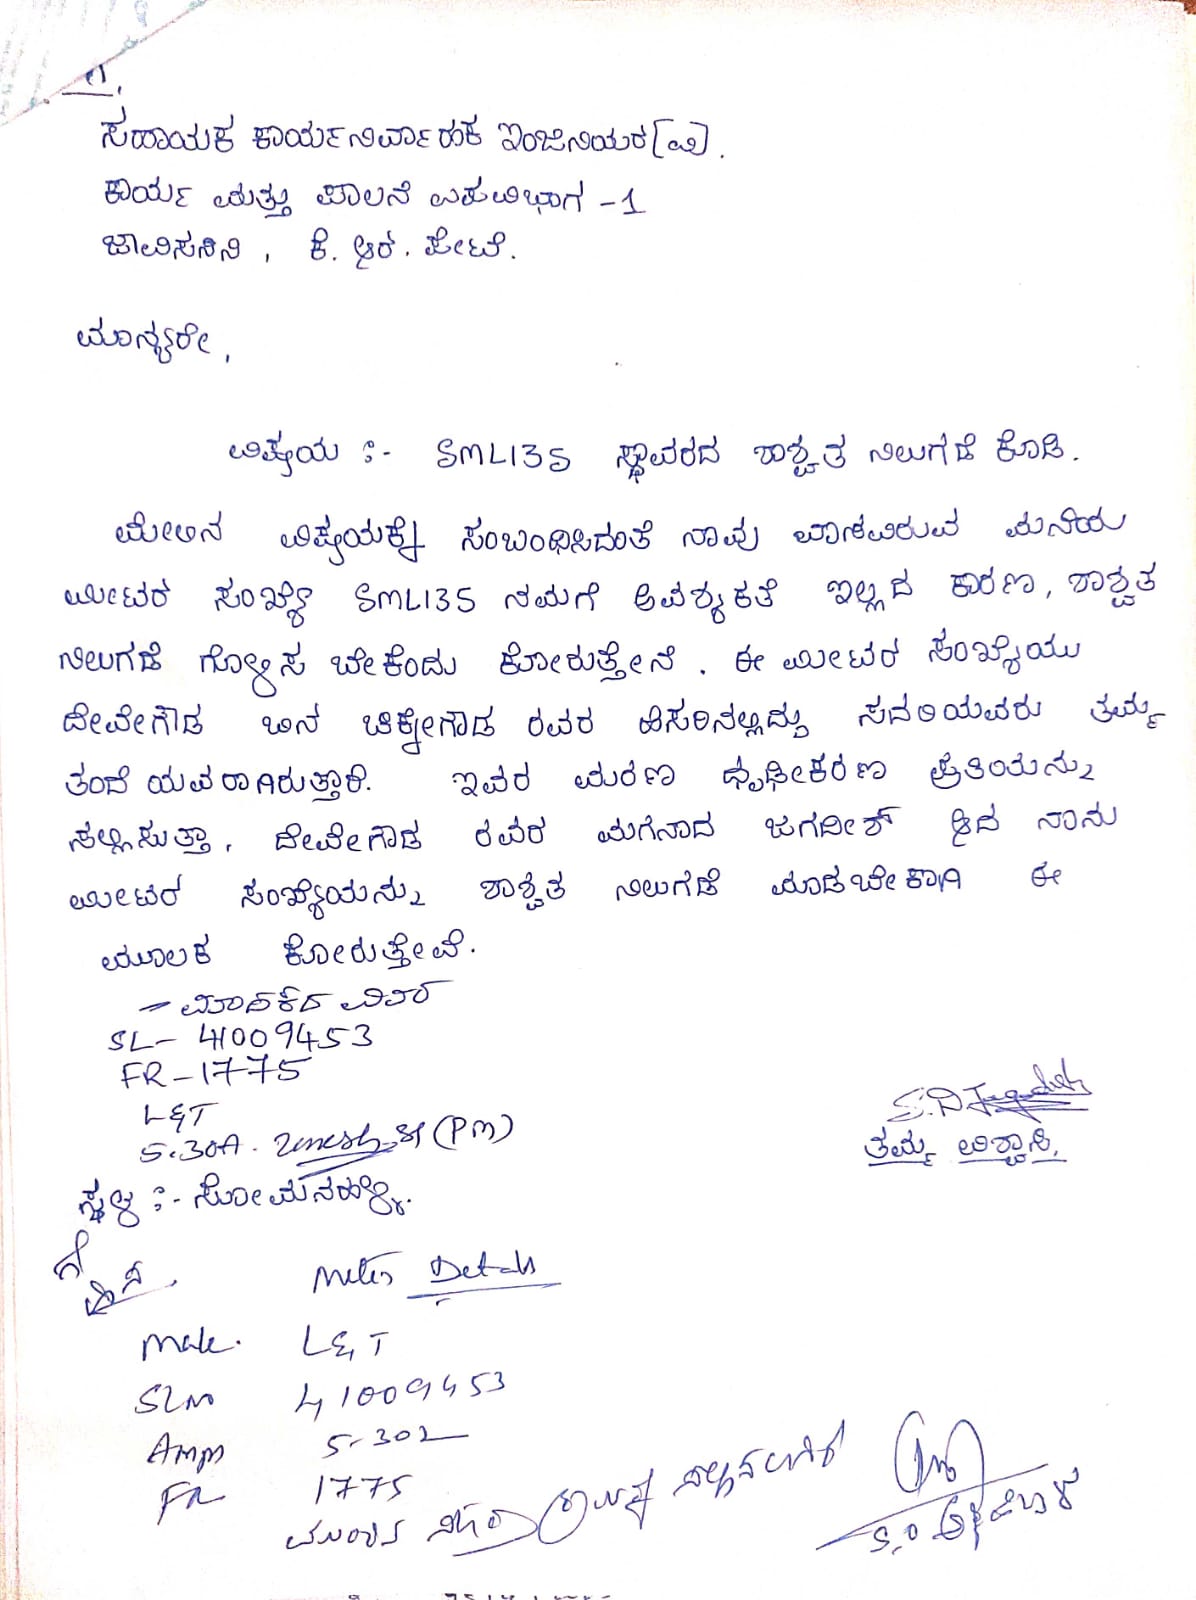 ಗೆ,
ಸಹಾಯಕ ಕಾರ್ಯನಿರ್ವಾಹಕ ಇಂಜಿನಿಯರ್[ವಿ].
ಕಾರ್ಯ ಮತ್ತು ಪಾಲನೆ ಉಪವಿಭಾಗ -1
ಚಾವಿಸನಿನಿ, ಕೆ. ಆರ್. ಪೇಟೆ.
ಮಾನ್ಯರೇ,
ವಿಷಯ :- SML135 ಸ್ಥಾವರದ ಶಾಶ್ವತ ನಿಲುಗಡೆ ಕೋಡಿ.
ಮೇಲಿನ ವಿಷಯಕ್ಕೆ ಸಂಬಂಧಿಸಿದಂತೆ ನಾವು ವಾಸವಿರುವ ಮನೆಯ
ಮೀಟರ್ ಸಂಖ್ಯೆ SML135 ನಮಗೆ ಅವಶ್ಯಕತೆ ಇಲ್ಲದ ಕಾರಣ, ಶಾಶ್ವತ
ನಿಲುಗಡೆ ಗೊಳ್ಳಿಸ ಬೇಕೆಂದು ಕೋರುತ್ತೇನೆ. ಈ ಮೀಟರ್ ಸಂಖ್ಯೆಯು
ದೇವೇಗೌಡ ಬಿನ್ ಚಿಕ್ಕೇಗೌಡ ರವರ ಹೆಸರಿನಲ್ಲಿದ್ದು ಸದರಿಯವರು ತಮ್ಮ
ತಂದೆ ಯವರಾಗಿರುತ್ತಾರೆ. ಇವರ ಮರಣ ಧೃಢೀಕರಣ ಪ್ರತಿಯನ್ನು
ಸಲ್ಲಿಸುತ್ತಾ, ದೇವೇಗೌಡ ರವರ ಮಗನಾದ ಜಗದೀಶ್ ಆದ ನಾನು
ಮೀಟರ್ ಸಂಖ್ಯೆಯನ್ನು ಶಾಶ್ವತ ನಿಲುಗೆಡೆ ಮಾಡಬೇಕಾಗಿ ಈ
ಮೂಲಕ ಕೋರುತ್ತೇವೆ.
- ಮಾಪಕದ ವಿವರ
SL- 41009453
FR-1775
L&T
5-30A. (PM)
S.D Jagadish
ತಮ್ಮ ವಿಶ್ವಾಸಿ,
ಸ್ಥಳ :- ಸೋಮನಹಳ್ಳಿ.
Meter Details
Make. L&T
SLNO 41009453
Amp 5-302
FR 1775